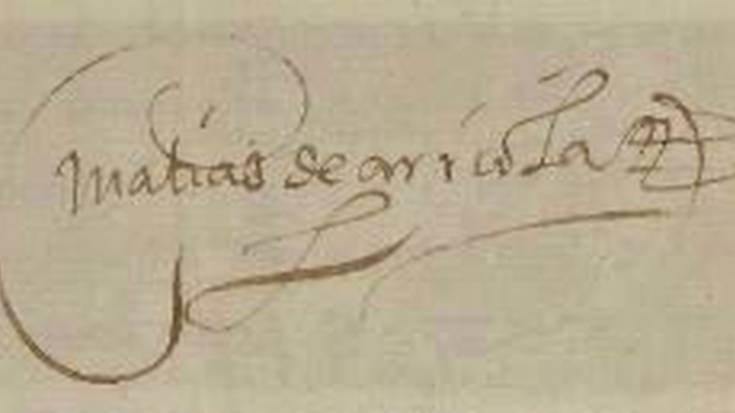 Matias de arriola